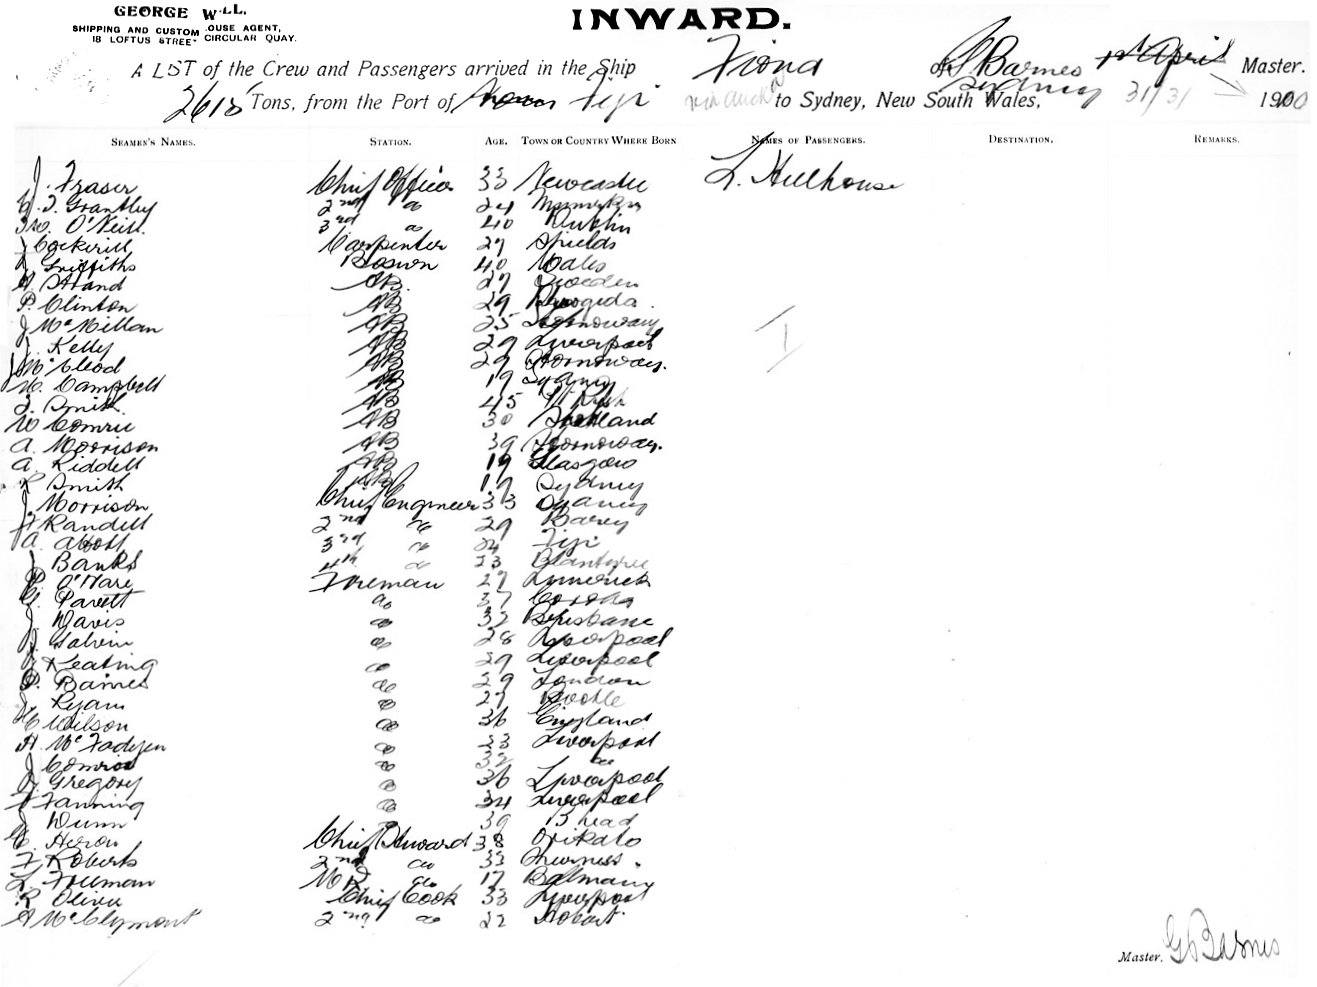 GEORGE WILL.
SHIPPING AND CUSTOM HOUSE AGENT,
18 LOFTUS STREET CIRCULAR QUAY.
INWARD.
A LIST of the Crew and Passengers arrived in the Ship Fiona of Sydney G S Barnes 1st April Master.
2618 Tons, from the Port of Fiji via Auck to Sydney, New South Wales, 31/3/ 1900
SEAMEN'S NAMES. STATION. AGE. TOWN OR COUNTRY WHERE BORN NAMES OF PASSENGERS. DESTINATION. REMARKS.
J. Fraser Chief Officer 33 Newcastle L. Hellhouse
Grantley 2nd do 24
W. O'Neill 3rd do 40 Dublin
J Cockerill Carpenter 27 Shields
Griffiths Boswn 40 Wales
Strand AB 27 Sweden
P. Clinton AB 29
J McMillan AB 25 Stornoway
J. Kelly AB 29 Liverpool
J McCleod AB 29 Stornoway.
Campbell AB 19 Sydney
Smith AB 45
W Comrie AB 30 Shetland
A. Morrison AB 39 Stornoway.
A. Riddell AB 19 Glasgow
R Smith AB 19 Sydney
J Morrison Chief Engineer 33 Sydney
Randell 2nd do 29 Barry
A. Abott 3rd do 24 Fiji
J Banks 4th do 23 Blantyre
P. O'Hare Fireman 27 Limerick
G. Pavett do 37
J. Davis do 32 Brisbane
Galvin do 28 Liverpool
Keating do 29 Liverpool
P. Barnes do 29 London
J. Ryan do 27 Bootle
C Wilson do 36 England
H. McFadyen do 33 Liverpool
J Comrie do 32 do
Gregory do 36 Liverpool
Fanning do 34 Liverpool
J Dunn do 39 B head
C. Heron Chief Steward 38
F Roberts 2nd do 33 Inverness.
L. Freeman M R do 17 Balmain
R Oliver Chief Cook 33 Liverpool
A McClymont 2nd do 22 Hobart
Master. G S Barnes